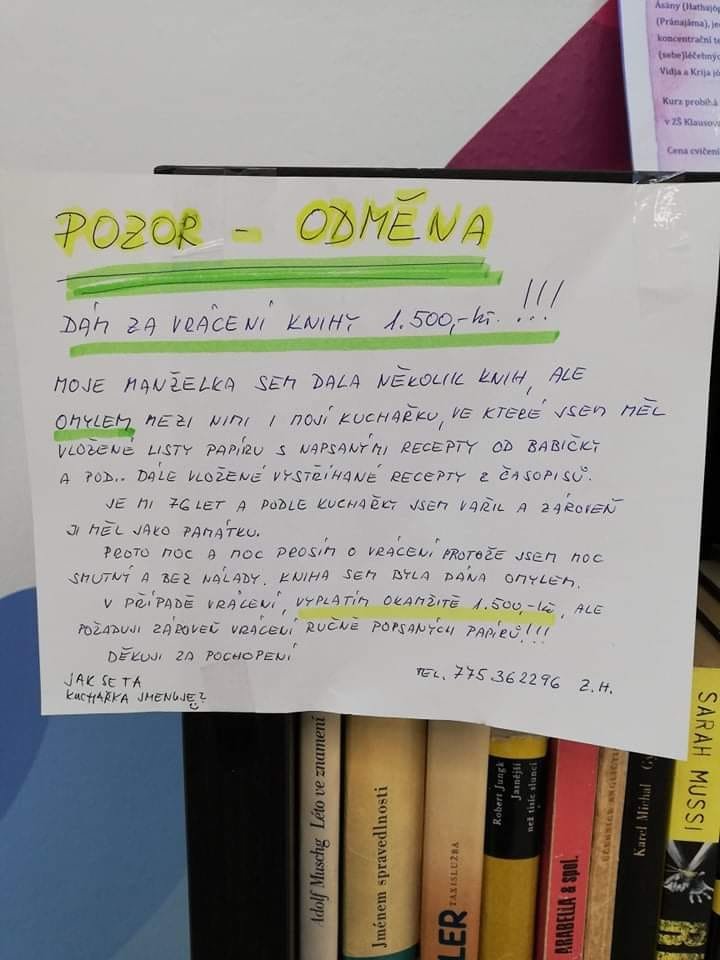 Ásány (Hathajóg
(Pránajáma), je
koncentrační te
(sebe)léčebnýc
Vidja a Krija jó
Kurz probíhá
v ZŠ Klausova
Cena cvičení
POZOR - ODMĚNA
DÁM ZA VRÁCENÍ KNIHY 1.500,-kč. !!!
MOJE MANŽELKA SEM DALA NĚKOLIK KNIH, ALE
OMYLEM MEZI NIMI I MOJÍ KUCHAŘKU, VE KTERÉ JSEM MĚL
VLOŽENÉ LISTY PAPÍRU S NAPSANÝMI RECEPTY OD BABIČKY
A POD.. DÁLE VLOŽENÉ VYSTŘÍHANÉ RECEPTY Z ČASOPISŮ.
JE MI 76 LET A PODLE KUCHAŘKY JSEM VAŘIL A ZÁROVEŇ
JI MĚL JAKO PAMÁTKU.
PROTO MOC A MOC PROSÍM O VRÁCENÍ PROTOŽE JSEM MOC
SMUTNÝ A BEZ NÁLADY. KNIHA SEM BYLA DÁNA OMYLEM.
V PŘÍPADĚ VRÁCENÍ, VYPLATÍM OKAMŽITĚ 1.500,-kč, ALE
POŽADUJI ZÁROVEŇ VRÁCENÍ RUČNĚ POPSANÝCH PAPÍRŮ!!!
DĚKUJI ZA POCHOPENÍ
TEL. 775 362296 Z.H.
JAK SE TA
KUCHAŘKA JMENUJE?
Adolf Muschg Léto ve znamení
Jménem spravedlnosti
LER TAXISLUŽBA
Robert Jungk
Jasnější
než tisíc sluncí
ARABELLA & spol.
UČEBNICE
Karel Michal
SARAH MUSSI